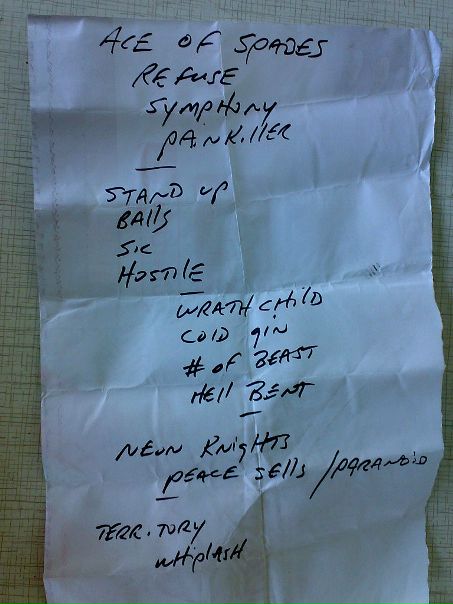 ACE OF SPADES
REFUSE
SYMPHONY
PAINKILLER
STAND UP
BALLS
SIC
HOSTILE
WRATHCHILD
COLD GIN
# OF BEAST
HELL BENT
NEON KNIGHTS
PEACE SELLS / PARANOID
TERRITORY
WHIPLASH